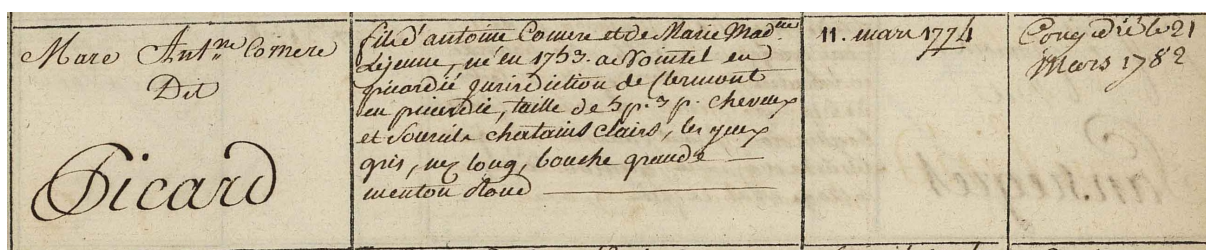 Marc Ant.ne Comere
Dit
Picard
fils d'antoine Comere et de Marie Mad.ne
Lejeune, né en 1753. a Nointel en
picardié jurisdiction de Clermont
en picardie, taille de 5 p. 3 p. cheveux
et Sourcils chatains clairs, les yeux
gris, nez long, bouche grande
menton rond
11. mars 1774
Congedié le 21
Mars 1782